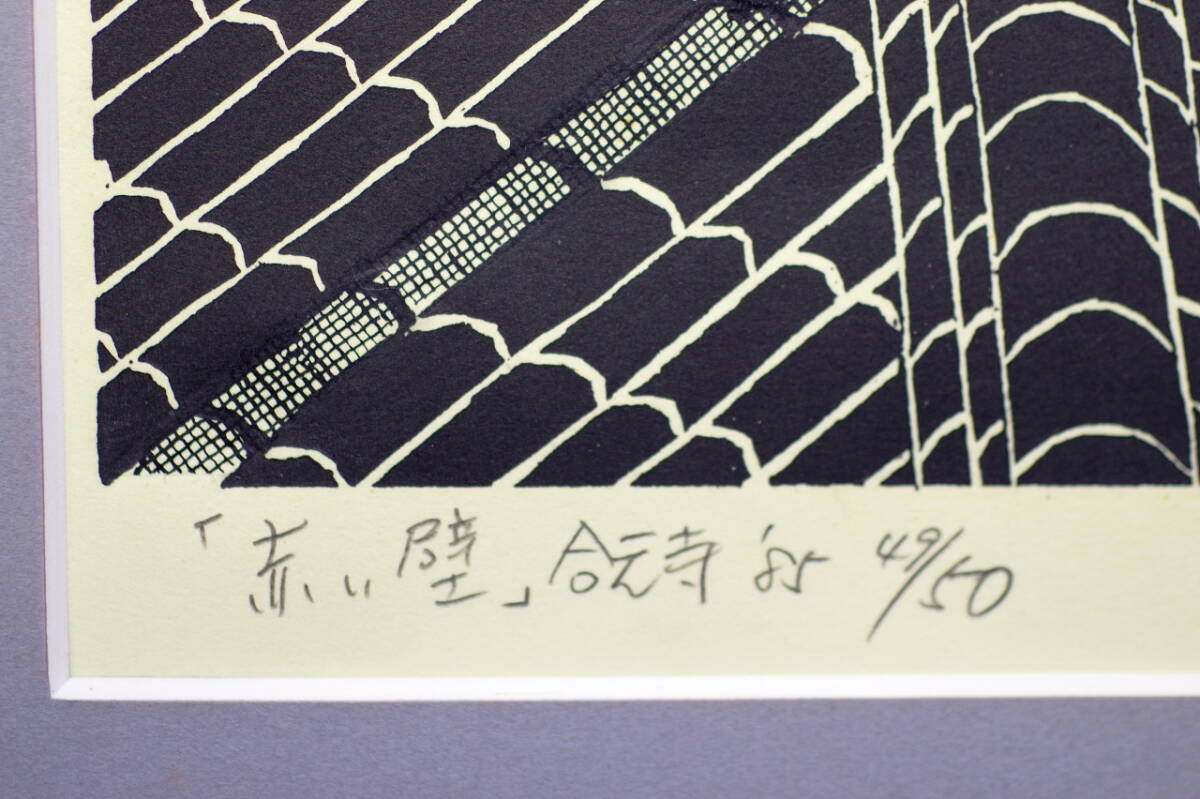 「赤い壁」合元寺 '85 49/50